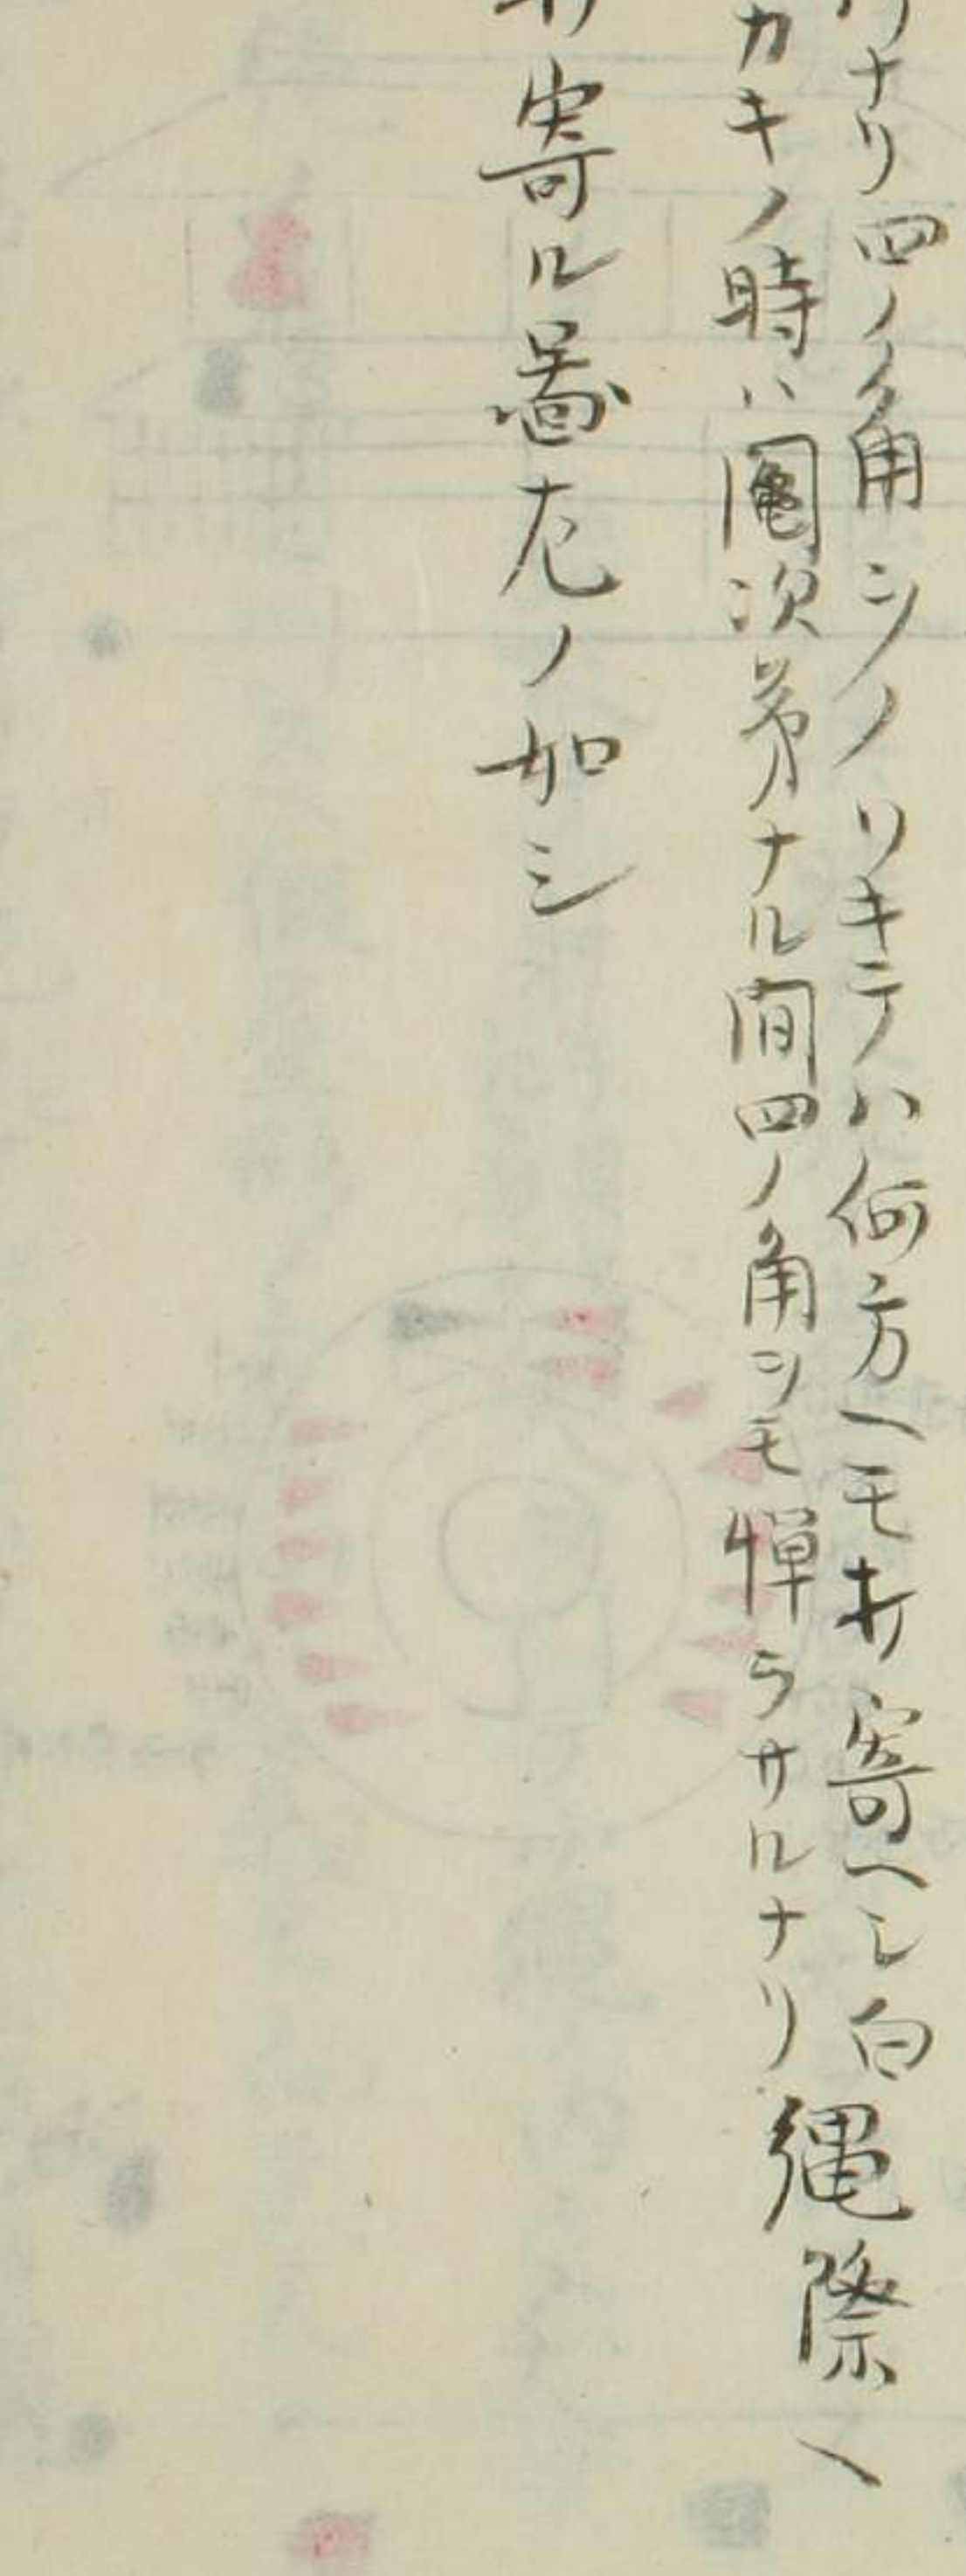 ナリ四ノ角ヲノリキテハ何方ヘモ打寄ヘシ白
カキノ時ハ鬮次第ナル間四ノ角ヲモ憚ラサルナリ
縄際ヘ
寄ル圖左ノ如シ